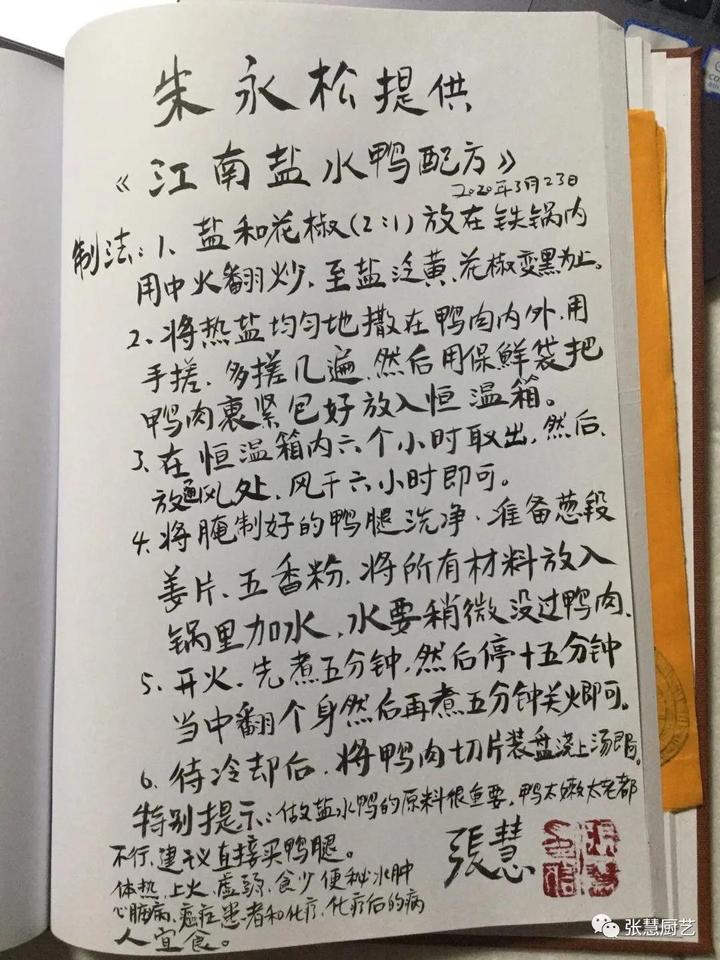 朱永松提供
《江南盐水鸭配方》
2020年3月23日
制法:1、盐和花椒(2:1)放在铁锅内
用中火翻炒、至盐泛黄、花椒变黑为止。
2、将热盐均匀地撒在鸭肉内外、用
手搓、多搓几遍、然后用保鲜袋把
鸭肉裹紧包好放入恒温箱。
3、在恒温箱内六个小时取出,然后、
放通风处、风干六小时即可。
4、将腌制好的鸭腿洗净、准备葱段
姜片、五香粉、将所有材料放入
锅里加水、水要稍微没过鸭肉、
5、开火、先煮五分钟,然后停十五分钟
当中翻个身然后再煮五分钟关火即可。
6、待冷却后、将鸭肉切片装盘浇上汤即可。
特别提示:做盐水鸭的原料很重要,鸭太嫩太老都
不行、建议直接买鸭腿。
体热、上火、虚弱、食少便秘水肿
心脏病、癌症患者和化疗、化疗后的病
人宜食。
張慧
张慧厨艺